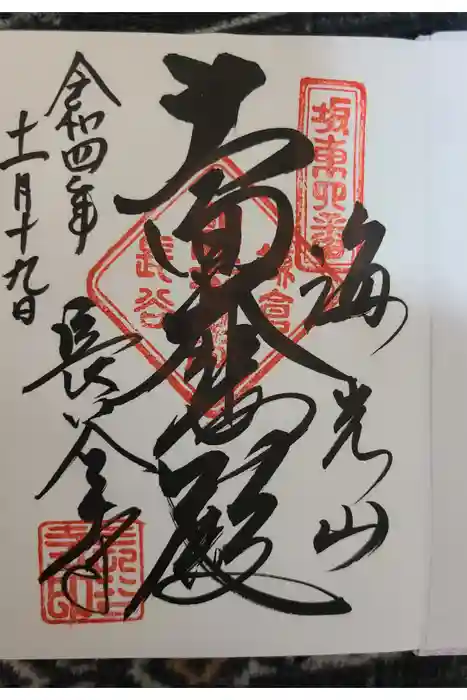 坂東四番
海光山
十一面大悲殿
鎌倉
長谷
令和四年
十一月十九日
長谷寺